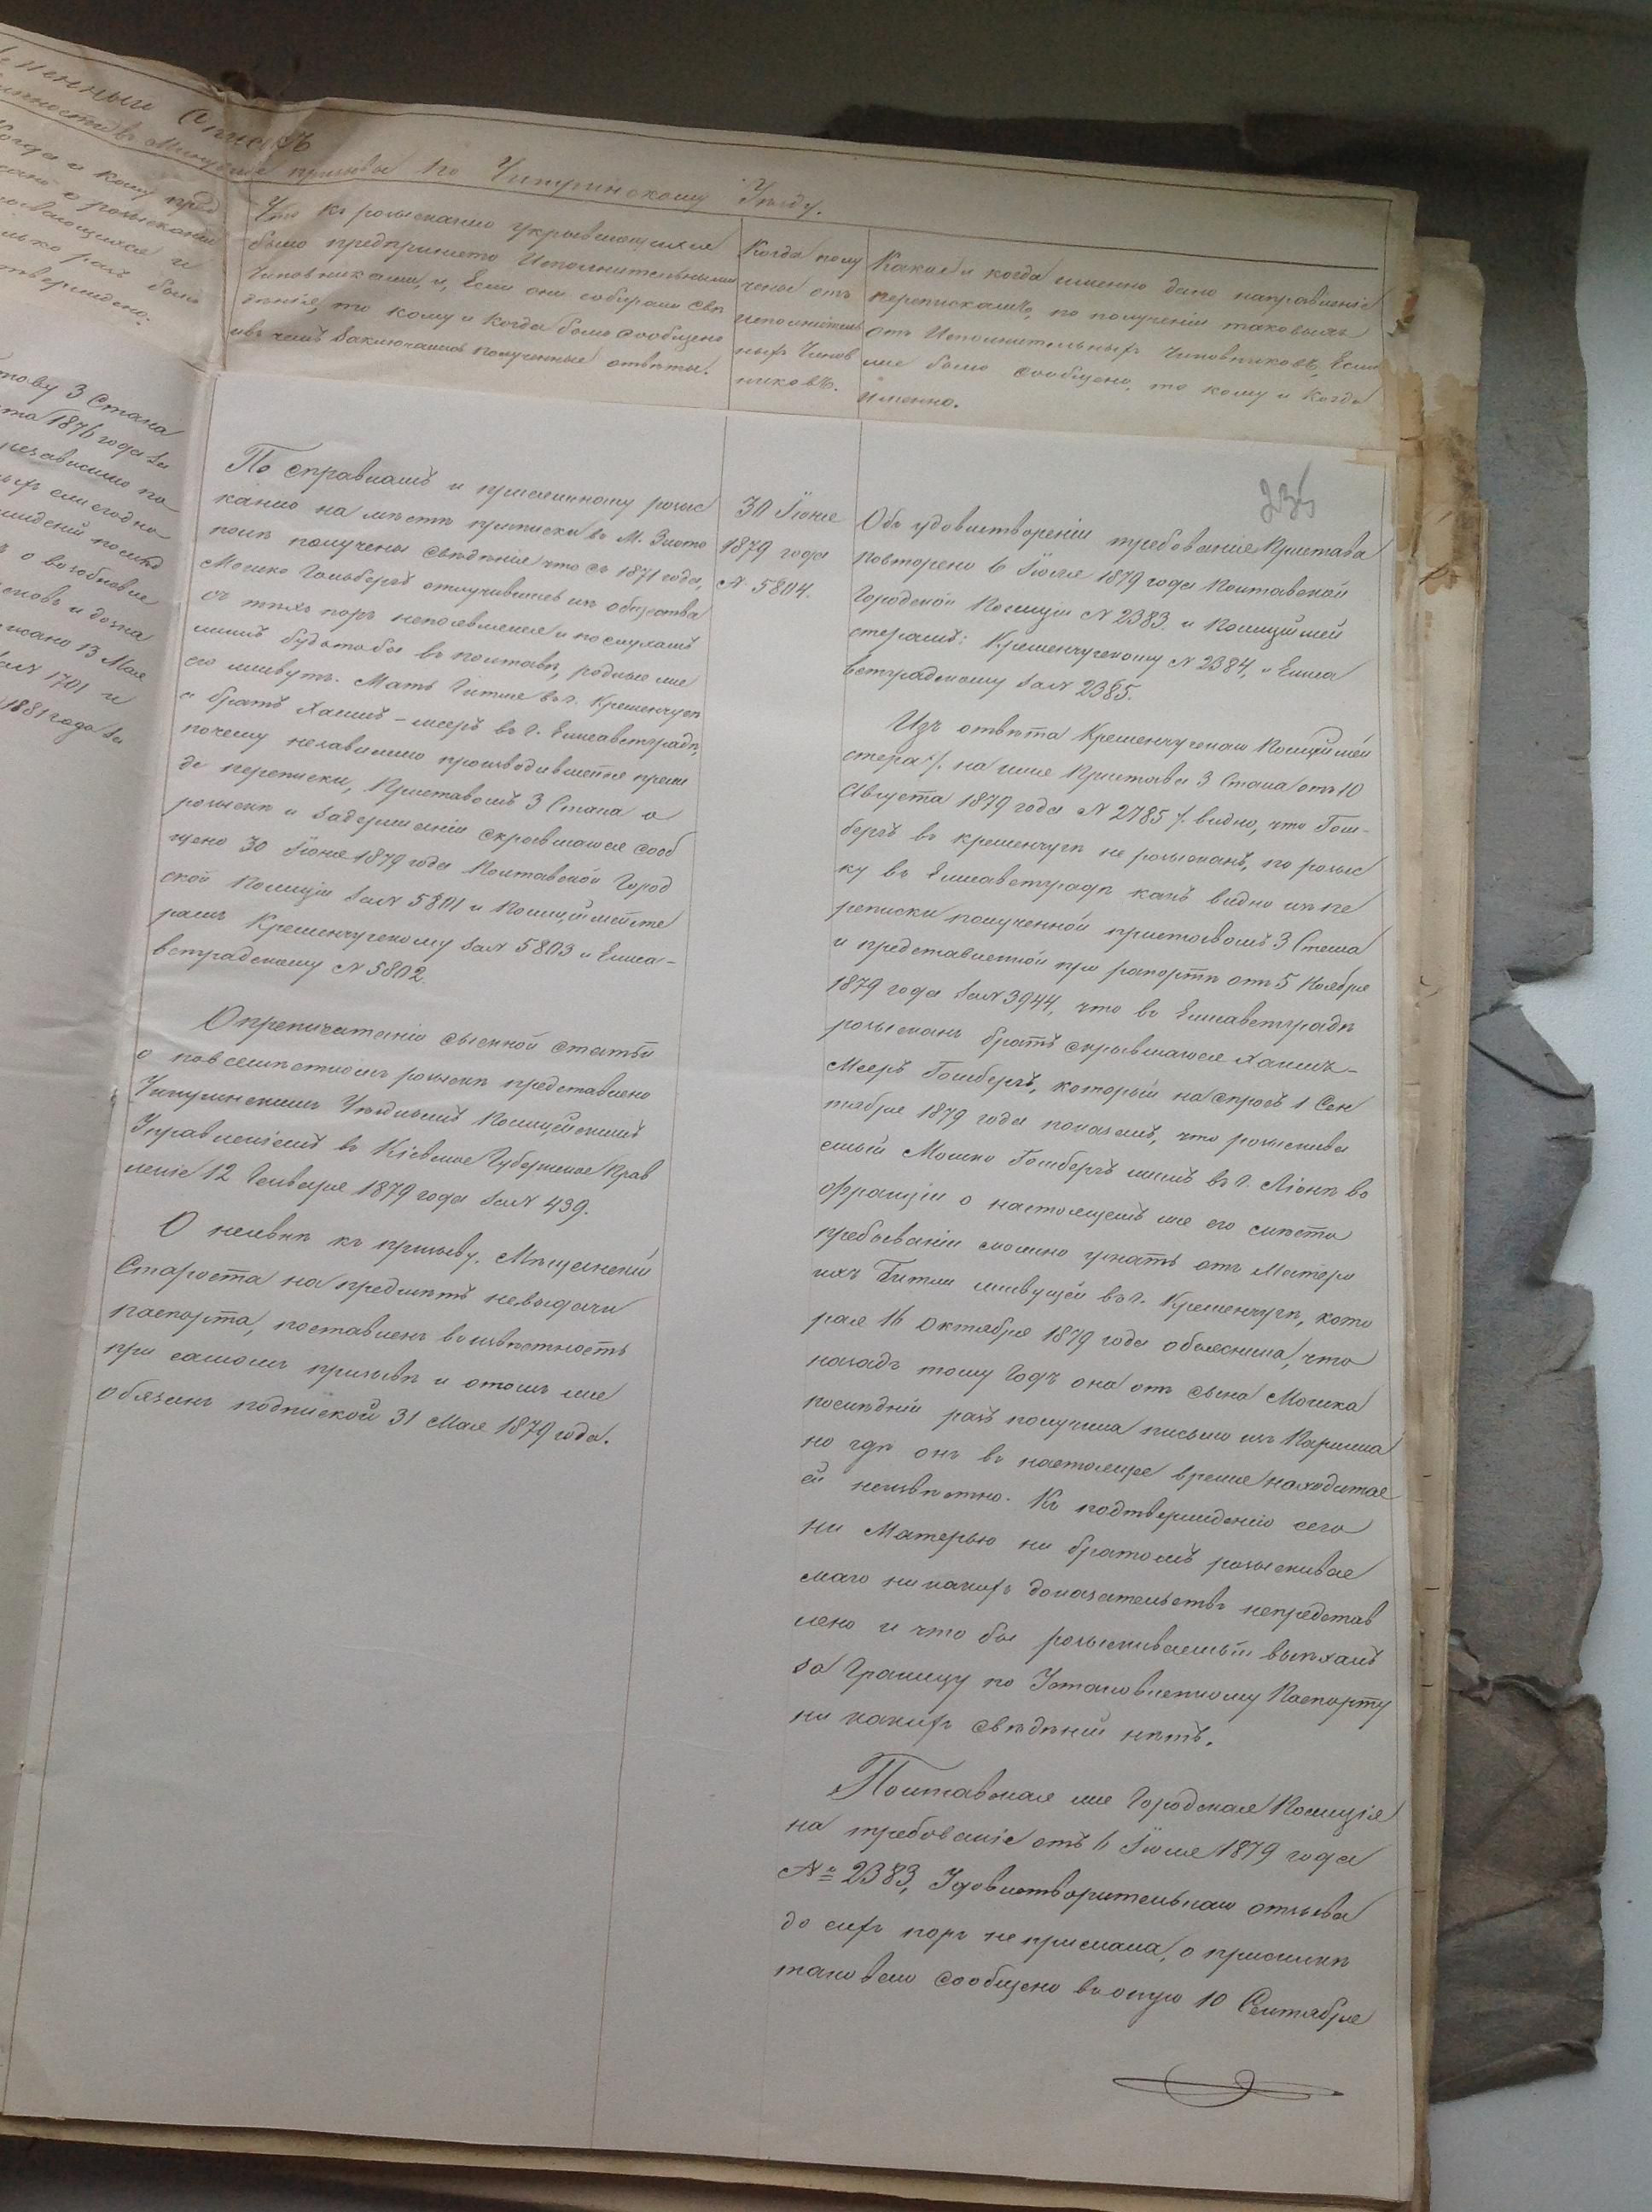 Именный Списокъ
призывы по Чигиринскому Уѣзду.
Когда и кому пред
сано о розысканіи
вающихся и
лько разъ было
тверждено.
таву 3 Стана
ста 1876 года за
независимо по
о возобновле
исано 13 Мая
зах 1701 и
1881 года за
Что къ розысканію укрывающихся
было предпринято Исполнительными
Чиновниками, и, Если они собирали свѣ
дѣнія, то кому и когда было сообщено
и въ чемъ Заключались полученные отвѣты.
Когда полу
чены отъ
исполнитель
ныхъ Чинов
никовъ.
Какое и когда именно дано направленіе
перепискамъ, по полученіи таковыхъ
отъ Исполнительныхъ Чиновниковъ, Если
же было сообщено, то кому и Когда
именно.
По справкамъ и присяжному розыс
канію на мѣстѣ приписки въ М. Злато
полѣ получены свѣдѣнія что съ 1871 года,
Мошко Гольбергъ отлучившись изъ общества
съ тѣхъ поръ непоявлялся и по слухамъ
жилъ будьтобы въ полтавѣ, родные же
его живутъ. Мать Гитля въ г. Кременчугѣ
а братъ Хаимъ-мееръ въ г. Елисаветградѣ,
почему независимо производившейся преж
де переписки, Приставомъ 3 Стана о
розыскѣ и задержаніи скрывшагося сооб
щено 30 Іюня 1879 года Полтавской Город
ской Полиціи за № 5801 и Полиціймейсте
рамъ Кременчугскому за № 5803 и Елиса-
ветградскому № 5802.
О препечатаніи сыскной статьи
о повсемѣстномъ розыскѣ представлено
Чигиринскимъ Уѣзднымъ Полицейскимъ
Управленіемъ въ Кіевское Губернское Прав
леніе 12 Генваря 1879 года за № 439.
О неявкѣ къ призыву, Мѣщанскій
Староста на предметъ невыдачи
паспорта, поставленъ въ извѣстность
при самомъ призывѣ и отомъ же
обязанъ подпиской 31 Мая 1879 года.
30 Іюня
1879 года
№ 5804.
235
Объ удовлетвореніи требованія Пристава
повторено 6 Іюля 1879 года Полтавской
Городской Полиціи № 2383. и Полиціймей
стерамъ: Кременчугскому № 2384, и Елиса
ветградскому за № 2385.
Изъ отвѣта Кременчугскаго Полиціймей
стера /. на имя Пристава 3 Стана отъ 10
Августа 1879 года № 2785 /. видно, что Голь-
бергъ въ кременчугѣ не розысканъ, по розыс
ку въ Елисаветградѣ какъ видно изъ пе
реписки полученной приставомъ 3 Стана
и представленной при рапортѣ отъ 5 Ноября
1879 года за № 3944, что въ Елисаветградѣ
розысканъ братъ скрывшагося Хаимъ-
Мееръ Гольбергъ, который на спросъ 1 Сен
тября 1879 года показалъ, что розыскива
емый Мошко Гольбергъ жилъ въ г. Ліонѣ во
франціи о настоящемъ же его мѣсто
пребываніи можно узнать отъ Матери
ихъ Гитли живущей въ г. Кременчугѣ, кото
рая 16 Октября 1879 года объяснила, что
назадъ тому Годъ она отъ сына Мошка
послѣдній разъ получила письмо изъ Парижа
но гдѣ онъ въ настоящее время находится
ей неизвѣстно. Къ подтвержденію сего
ни Матерью ни братомъ розыскивае
маго ни какихъ доказательствъ непредстав
лено и что бы розыскиваемый выѣхалъ
за Границу по Установленному Паспорту
ни какихъ свѣдѣній нѣтъ.
Полтавская же Городская Полиція
на требованіе отъ 6 Іюля 1879 года
№ 2383, Удовлетворительнаго отзыва
до сихъ поръ не прислала, о присылкѣ
таковаго сообщено въ оную 10 Сентября